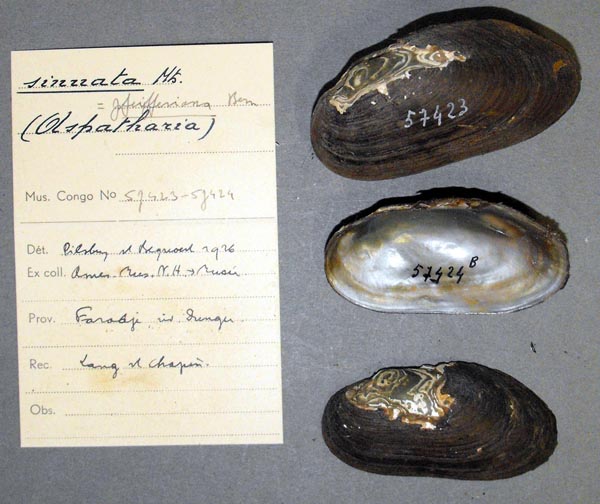 sinuata Mts.
= pfeifferiana Bern
(Aspatharia)
Mus. Congo No 57423-57424
Dét. Pilsbry et Bequaert 1926
Ex coll. Amer. Mus. N.H. &
Prov. Faradje riv.
Rec. Lang et Chapin.
Obs.
57423
57424 B